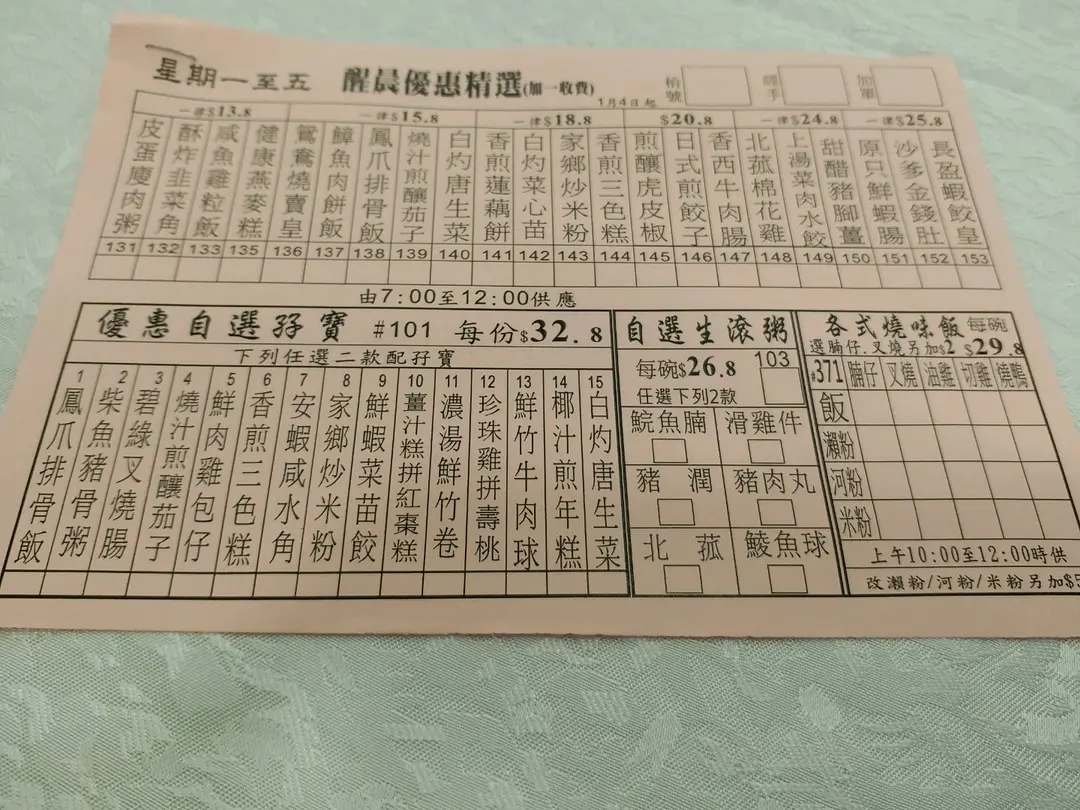 星期一至五 醒晨優惠精選(加一收費) 1月4日起 枱號 經手 加單
一律$13.8 一律$15.8 一律$18.8 $20.8 一律$24.8 一律$25.8
皮蛋廋肉粥 131
酥炸韭菜角 132
咸魚雞粒飯 133
健康燕麥糕 135
鴛鴦燒賣皇 136
鱆魚肉餅飯 137
鳳爪排骨飯 138
燒汁煎釀茄子 139
白灼唐生菜 140
香煎蓮藕餅 141
白灼菜心苗 142
家鄉炒米粉 143
香煎三色糕 144
煎釀虎皮椒 145
日式煎餃子 146
香西牛肉腸 147
北菰棉花雞 148
上湯菜肉水餃 149
甜醋豬腳薑 150
原只鮮蝦腸 151
沙爹金錢肚 152
長盈蝦餃皇 153
由7:00至12:00供應
優惠自選孖寶 #101 每份$32.8
下列任選二款配孖寶
1 鳳爪排骨飯
2 柴魚豬骨粥
3 碧綠叉燒腸
4 燒汁煎釀茄子
5 鮮肉雞包仔
6 香煎三色糕
7 安蝦咸水角
8 家鄉炒米粉
9 鮮蝦菜苗餃
10 薑汁糕拼紅棗糕
11 濃湯鮮竹卷
12 珍珠雞拼壽桃
13 鮮竹牛肉球
14 椰汁煎年糕
15 白灼唐生菜
自選生滾粥
每碗$26.8 103
任選下列2款
鯇魚腩 滑雞件
豬潤 豬肉丸
北菰 鯪魚球
各式燒味飯 每碗
選腩仔.叉燒另加$2 $29.8
#371 腩仔 叉燒 油雞 切雞 燒鴨
飯
瀨粉
河粉
米粉
上午10:00至12:00時供
改瀨粉/河粉/米粉另加$5